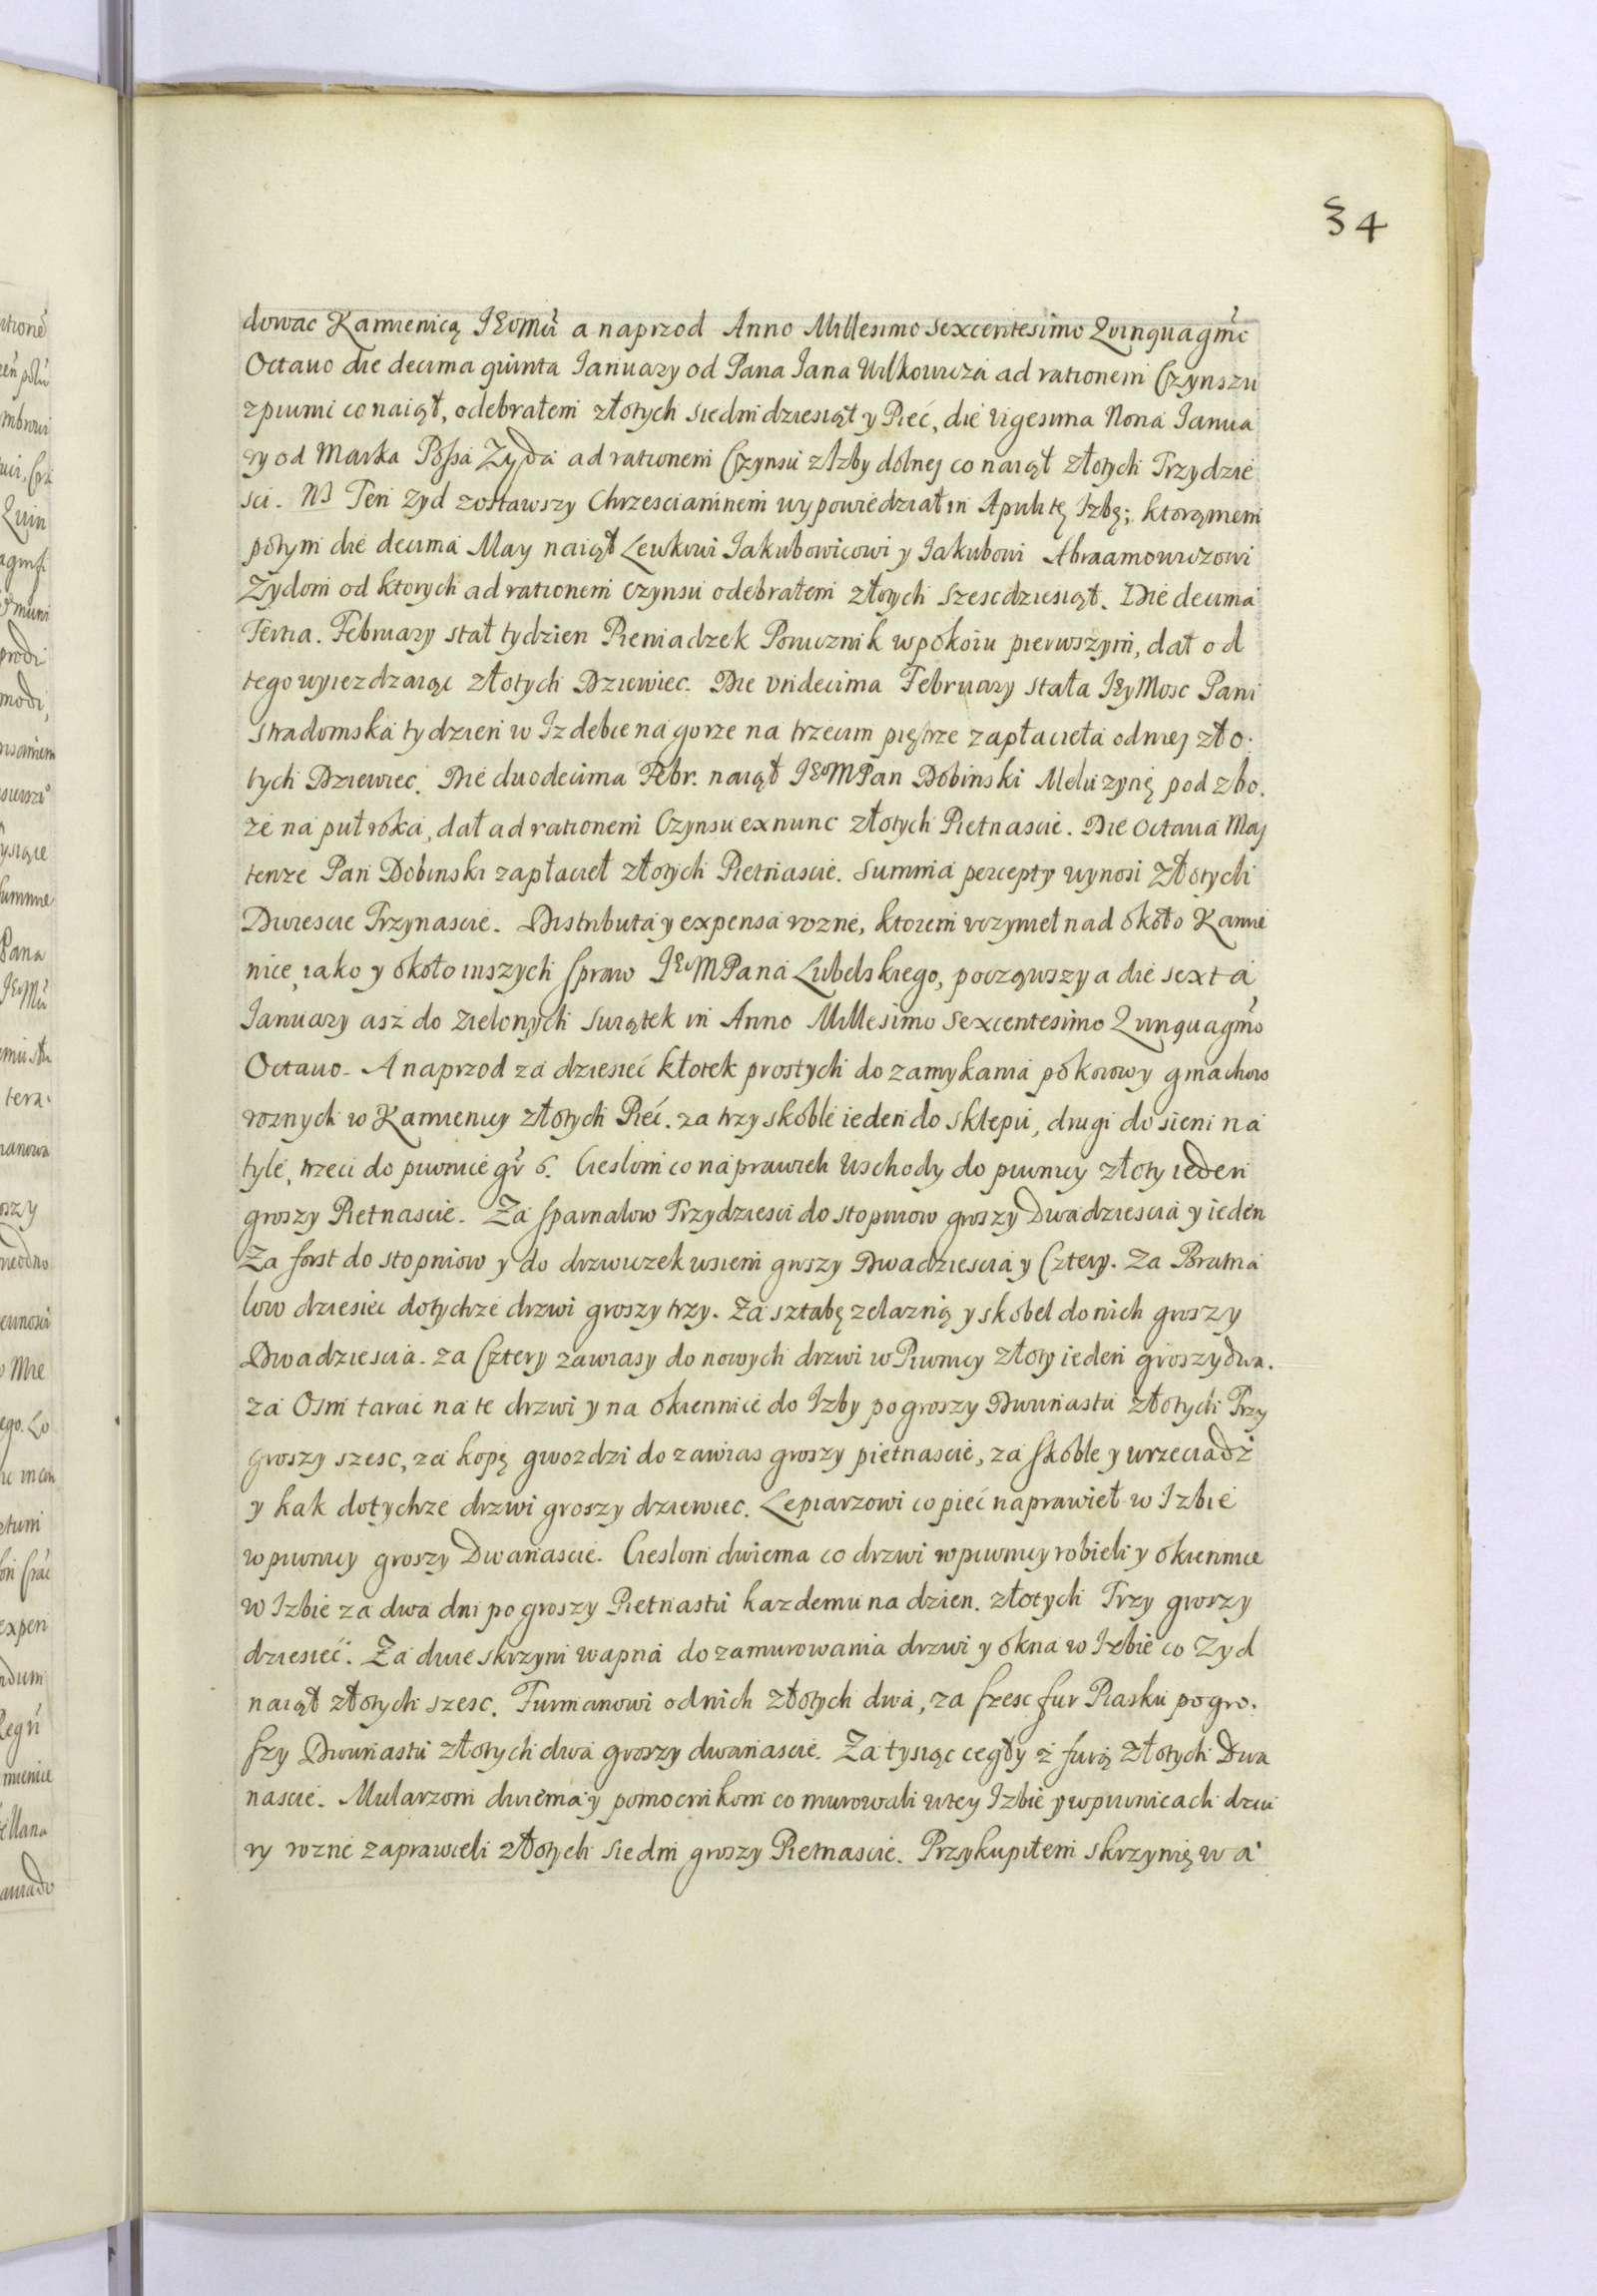 34
dowac Kamienicą JEoMũ a naprzod Anno Millesimo Sexcentesimo Quinquagm̃o
Octauo die decima quinta January od Pana Jana Wilkowicza ad rationem Czynszu
zpiwnni co naiął, odebrałem złotych siedmdziesiąt y Pieć, die vigesima Nona Janua
ry od Marka Possa Zyda ad rationem Czynsu zIzby dolnej co naiął złotych Trzydzie
sci. NB Ten Zyd zostawszy Chrzescianinem wypowiedział in Apuli tę Izbę; ktorąmem
potym die decima May naiął Lewkowi Jakubowicowi y Jakubowi Abraamowiczowi
Zydom od ktorych ad rationem czynsu odebrałem złotych szescdziesiąt. Die decima
Tertia. February stał tydzien Pieniadzek Porucznik wpokoiu pierwszym, dał od
tego wyiezdzaiąc złotych Dziewiec. Die vndecima February stała JEyMosc Pani
Stradomska tydzien w Izdebce na gorze na trzecim piętrze zapłacieła od niej zło.
tych Dziewiec. Die duodecima Febr. naiął JEoMPan Dobinski Meluzynę pod zbo.
ze na puł roka, dał ad rationem Czynsu ex nunc złotych Pietnascie. Die Octaua Maj
tenze Pan Dobinski zapłacieł złotych Pietnascie. Summa percepty wynosi złotych
Dwiescie Trzynascie. Distributa y expensa rozne, ktorem vczynieł nad około Kamie
nice, iako y około inszych spraw JEoMPana Lubelskiego, począwszy a die sexta
January asz do zielonych Swiątek in Anno Millesimo Sexcentesimo Quinquagm̃o
Octauo. A naprzod za dziesieć kłotek prostych do zamykania pokoiowy gmachow
roznych w Kamienicy złotych Pieć. za trzy skoble ieden do sklepu, drugi do sieni na
tyle, trzeci do piwnice gr̃ 6. Cieslom co naprawieli Wschody do piwnicy złoty ieden
groszy Pietnascie. Za sparnalow Trzydziesci do stopniow groszy Dwadziescia y ieden
Za forst do stopniow y do drzwiczek wsieni groszy Dwadziescia y Cztery. Za Bratna
low dziesiec dotychze drzwi groszy trzy. Za sztabę zelaznią y skobel do nich groszy
Dwadziescia. za Cztery zawiasy do nowych drzwi w Piwnicy złoty ieden groszy dwa.
za Osm tarcic na te drzwi y na okiennice do Izby po groszy Dwunastu złotych Trzy
groszy szesc, za kopę gwozdzi do zawias groszy pietnascie, za skoble y wrzeciadz
y hak dotychze drzwi groszy dziewiec. Lepiarzowi co pieć naprawieł w Izbie
w piwnicy groszy Dwanascie. Cieslom dwiema co drzwi w piwnicy robieli y okiennice
w Izbie za dwa dni po groszy Pietnastu kazdemu na dzien. złotych Trzy groszy
dziesieć. Za dwie skrzyni wapna do zamurowania drzwi y okna w Izbie co Zyd
naiął złotych szesc. Furmanowi od nich złotych dwa, za szesc fur Piasku po gro.
szy Dwunastu złotych dwa groszy dwanascie. Za tysiąc cegły z furą złotych Dwa
nascie. Mularzom dwiema y pomocnikom co murowali wtey Izbie y wpiwnicach dziu
ry rozne zaprawieli złotych siedm groszy Pietnascie. Przykupiłem skrzynię wa